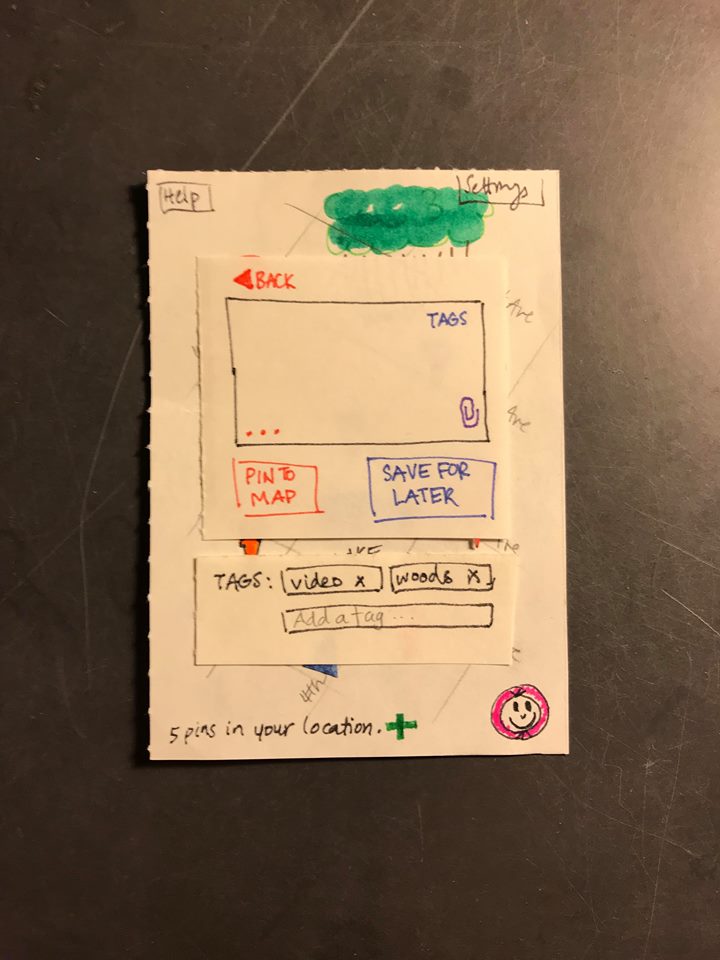 Help
Settings
BACK
TAGS
...
PIN TO
MAP
SAVE FOR
LATER
Ave
Ave
Ave
AVE
TAGS: video x woods x
Add a tag ...
4th
5 pins in your location. +